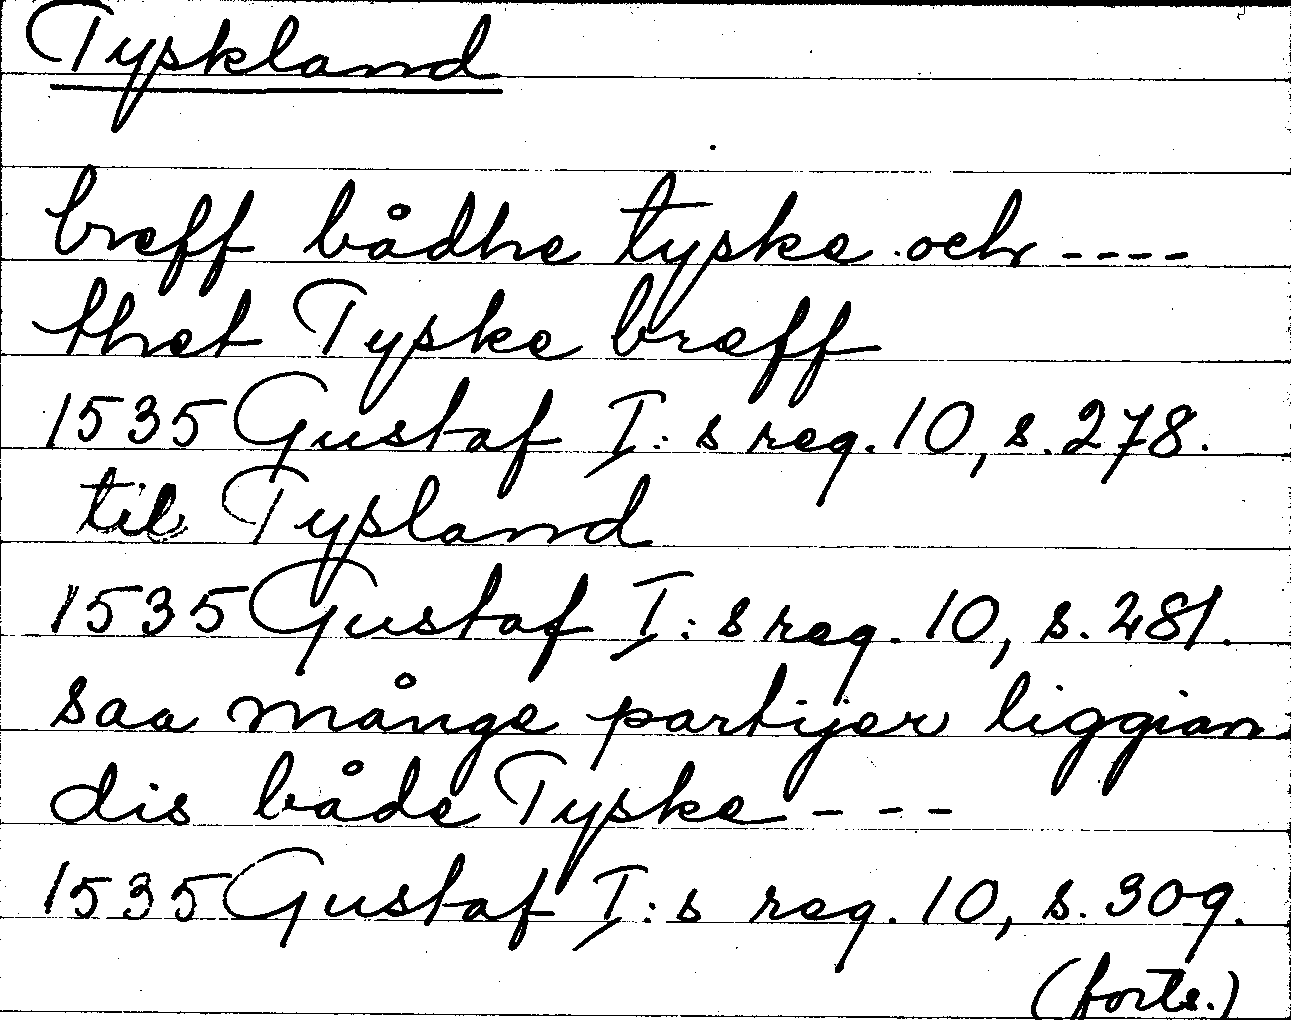 Tyskland
breff bådhe tyske och ----
thet Tyske breff
1535 Gustaf I:s reg. 10, s. 278.
til Tysland
1535 Gustaf I:s reg. 10, s. 281.
saa månge partijer liggian
dis både Tyske - - -
1535 Gustaf I:s reg. 10, s. 309.
(forts.)